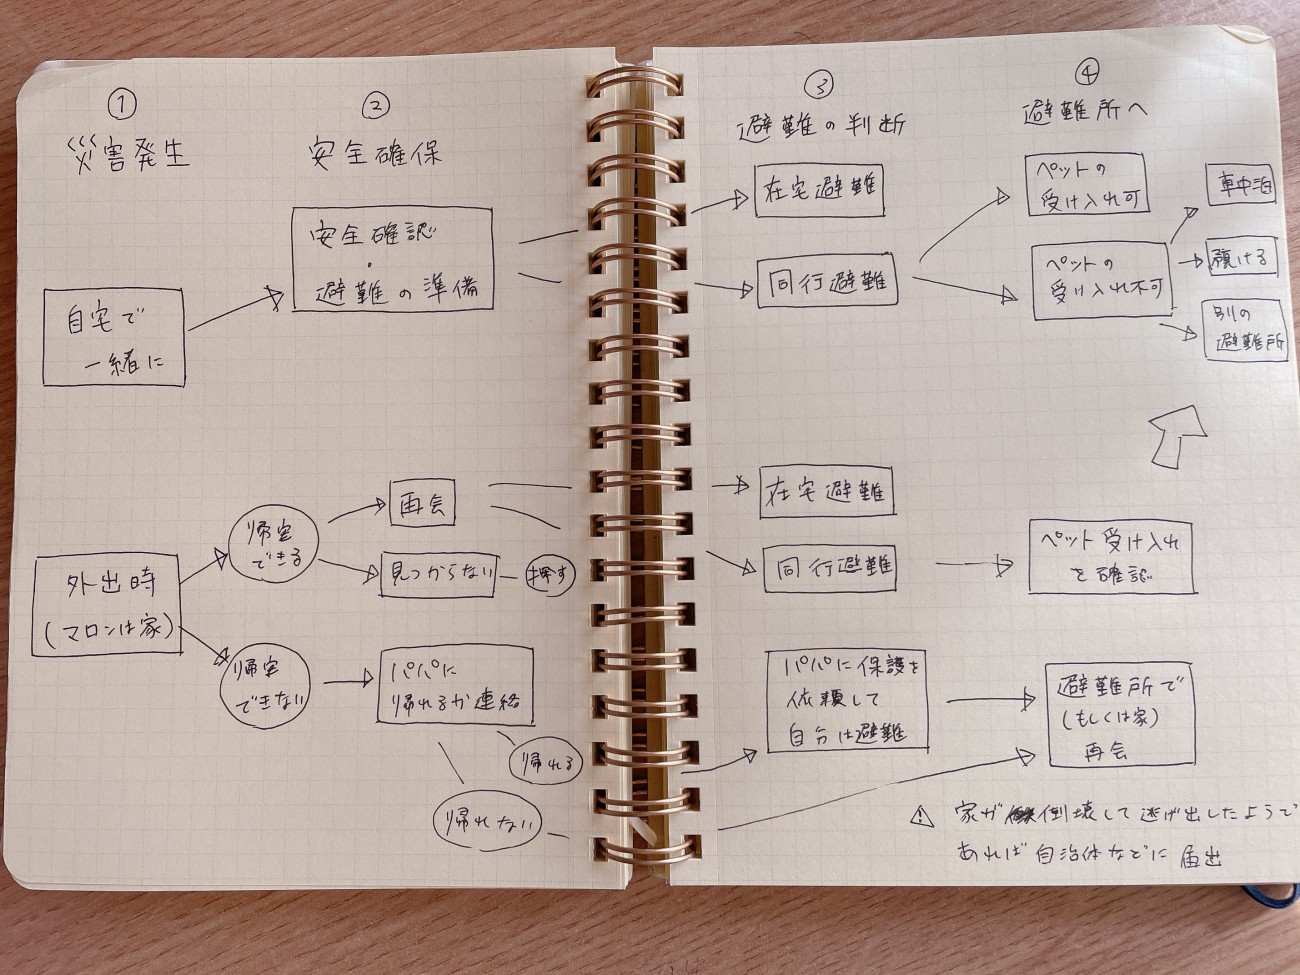 ①
災害発生
②
安全確保
③
避難の判断
④
避難所へ
自宅で
一緒に
安全確認
・
避難の準備
在宅避難
同行避難
ペットの
受け入れ可
ペットの
受け入れ不可
車中泊
預ける
別の
避難所
外出時
(マロンは家)
帰宅
できる
再会
見つからない
探す
帰宅
できない
パパに
帰れるか連絡
帰れる
帰れない
在宅避難
同行避難
ペット受け入れ
を確認
パパに保護を
依頼して
自分は避難
避難所で
(もしくは家)
再会
⚠ 家が倒壊して逃げ出したようで
あれば自治体などに届出